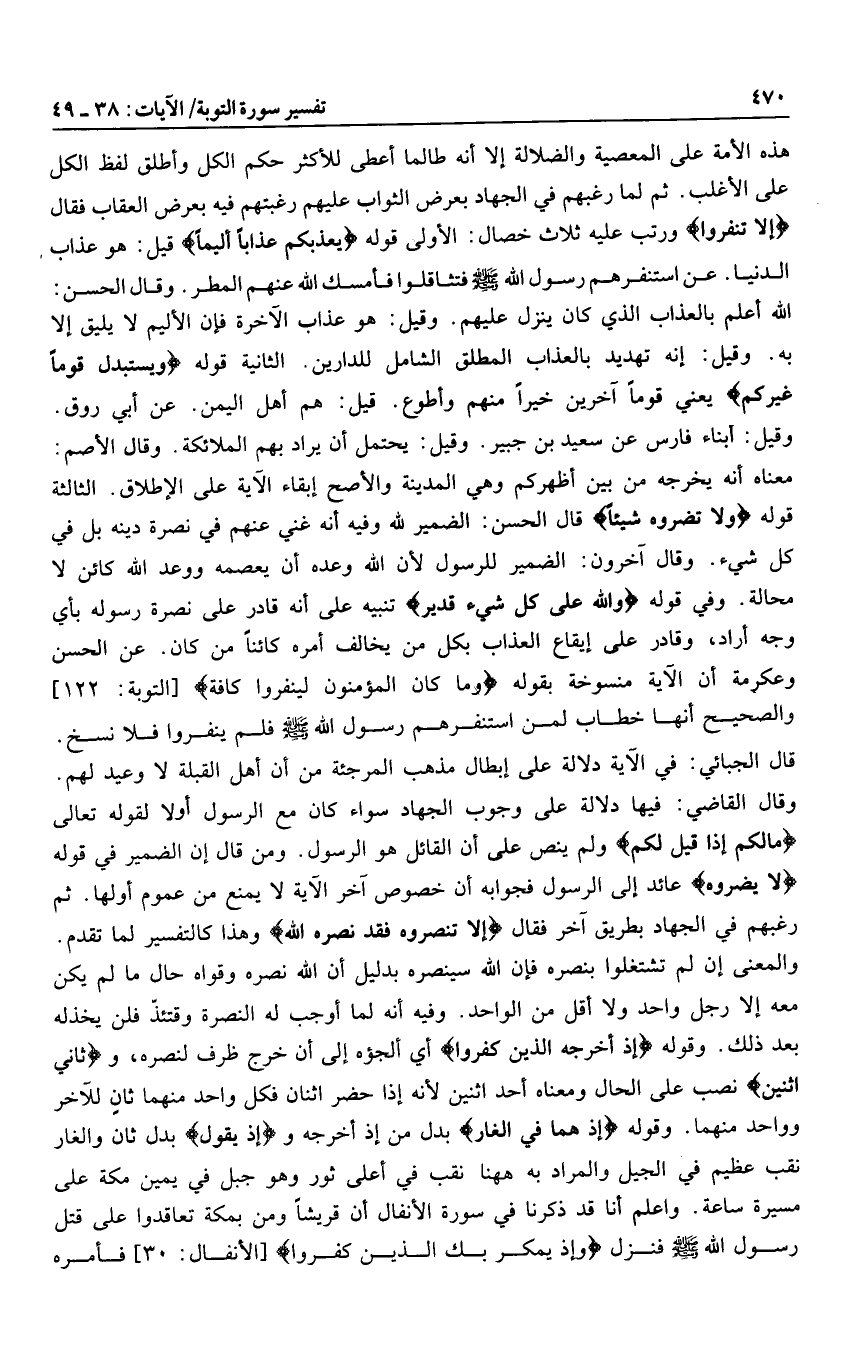 ٤٧٠
تفسير سورة التوبة/ الآيات: ٣٨ ـ ٤٩
هذه الأمة على المعصية والضلالة إلا أنه طالما أعطى للأكثر حكم الكل وأطلق لفظ الكل
على الأغلب. ثم لما رغبهم في الجهاد بعرض الثواب عليهم رغبتهم فيه بعرض العقاب فقال
﴿إلا تنفروا﴾ ورتب عليه ثلاث خصال: الأولى قوله ﴿يعذبكم عذاباً أليماً﴾ قيل: هو عذاب
الدنيا. عن استنفرهم رسول الله ﷺ فتثاقلوا فأمسك الله عنهم المطر. وقال الحسن:
الله أعلم بالعذاب الذي كان ينزل عليهم. وقيل: هو عذاب الآخرة فإن الأليم لا يليق إلا
به. وقيل: إنه تهديد بالعذاب المطلق الشامل للدارين. الثانية قوله ﴿ويستبدل قوماً
غيركم﴾ يعني قوماً آخرين خيراً منهم وأطوع. قيل: هم أهل اليمن. عن أبي روق.
وقيل: أبناء فارس عن سعيد بن جبير. وقيل: يحتمل أن يراد بهم الملائكة. وقال الأصم:
معناه أنه يخرجه من بين أظهركم وهي المدينة والأصح إبقاء الآية على الإطلاق. الثالثة
قوله ﴿ولا تضروه شيئاً﴾ قال الحسن: الضمير لله وفيه أنه غني عنهم في نصرة دينه بل في
كل شيء. وقال آخرون: الضمير للرسول لأن الله وعده أن يعصمه ووعد الله كائن لا
محالة. وفي قوله ﴿والله على كل شيء قدير﴾ تنبيه على أنه قادر على نصرة رسوله بأي
وجه أراد، وقادر على إيقاع العذاب بكل من يخالف أمره كائناً من كان. عن الحسن
وعكرمة أن الآية منسوخة بقوله ﴿وما كان المؤمنون لينفروا كافة﴾ [التوبة: ١٢٢]
والصحيح أنها خطاب لمن استنفرهم رسول الله ﷺ فلم ينفروا فلا نسخ.
قال الجبائي: في الآية دلالة على إبطال مذهب المرجئة من أن أهل القبلة لا وعيد لهم.
وقال القاضي: فيها دلالة على وجوب الجهاد سواء كان مع الرسول أولا لقوله تعالى
﴿مالكم إذا قيل لكم﴾ ولم ينص على أن القائل هو الرسول. ومن قال إن الضمير في قوله
﴿لا يضروه﴾ عائد إلى الرسول فجوابه أن خصوص آخر الآية لا يمنع من عموم أولها. ثم
رغبهم في الجهاد بطريق آخر فقال ﴿إلا تنصروه فقد نصره الله﴾ وهذا كالتفسير لما تقدم.
والمعنى إن لم تشتغلوا بنصره فإن الله سينصره بدليل أن الله نصره وقواه حال ما لم يكن
معه إلا رجل واحد ولا أقل من الواحد. وفيه أنه لما أوجب له النصرة وقتئذّ فلن يخذله
بعد ذلك. وقوله ﴿إذ أخرجه الذين كفروا﴾ أي ألجؤه إلى أن خرج ظرف لنصره، و ﴿ثاني
اثنين﴾ نصب على الحال ومعناه أحد اثنين لأنه إذا حضر اثنان فكل واحد منهما ثانٍ للآخر
وواحد منهما. وقوله ﴿إذ هما في الغار﴾ بدل من إذ أخرجه و ﴿إذ يقول﴾ بدل ثان والغار
نقب عظيم في الجبل والمراد به ههنا نقب في أعلى ثور وهو جبل في يمين مكة على
مسيرة ساعة. واعلم أنا قد ذكرنا في سورة الأنفال أن قريشاً ومن بمكة تعاقدوا على قتل
رسول الله ﷺ فنزل ﴿وإذ يمكر بك الذين كفروا﴾ [الأنفال: ٣٠] فأمره